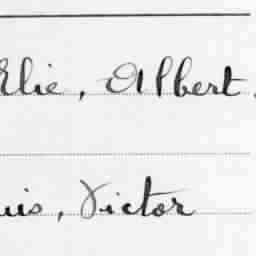 Elie, Albert,
uis, Victor